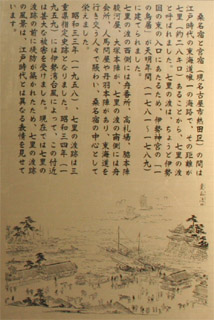 桑名宿と宮宿(現名古屋市熱田区)の間は
江戸時代の東海道唯一の海路で、その距離が
七里(約二八キロ)あることから、七里の渡
と呼ばれました。七里の渡は、ちょうど伊勢
国の東の入口にあたるため、伊勢神宮の「一
の鳥居」が天明年間(一七八一~一七八九)
に建てられました。
七里の渡の西側には舟番所、高札場、脇本陣
駿河屋、大塚本陣が、七里の渡の南側には舟
会所、人馬問屋や丹羽本陣があり、東海道を
行き交う人々で賑わい、桑名宿の中心として
栄えました。
昭和三三年(一九五八)、七里の渡跡は三
重県指定史跡となりました。昭和三四年(一
九五九)には伊勢湾台風によって、この付近
は甚大な被害を受けました。現在では七里の
渡跡の前に堤防が築かれたため、七里の渡跡
の風景は、江戸時代とは異なる表情を見せて
います。